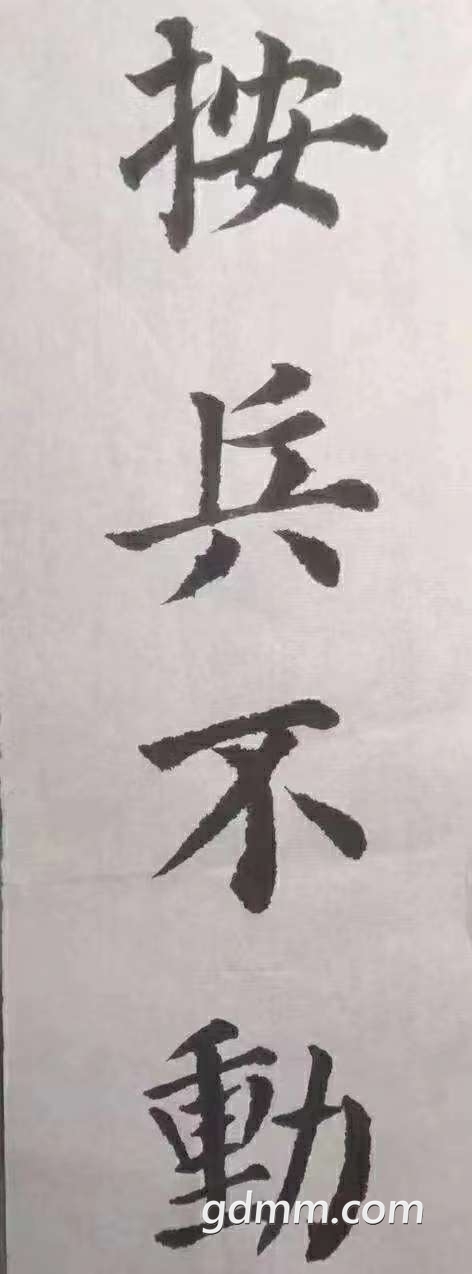 按兵不動
gdmm.com